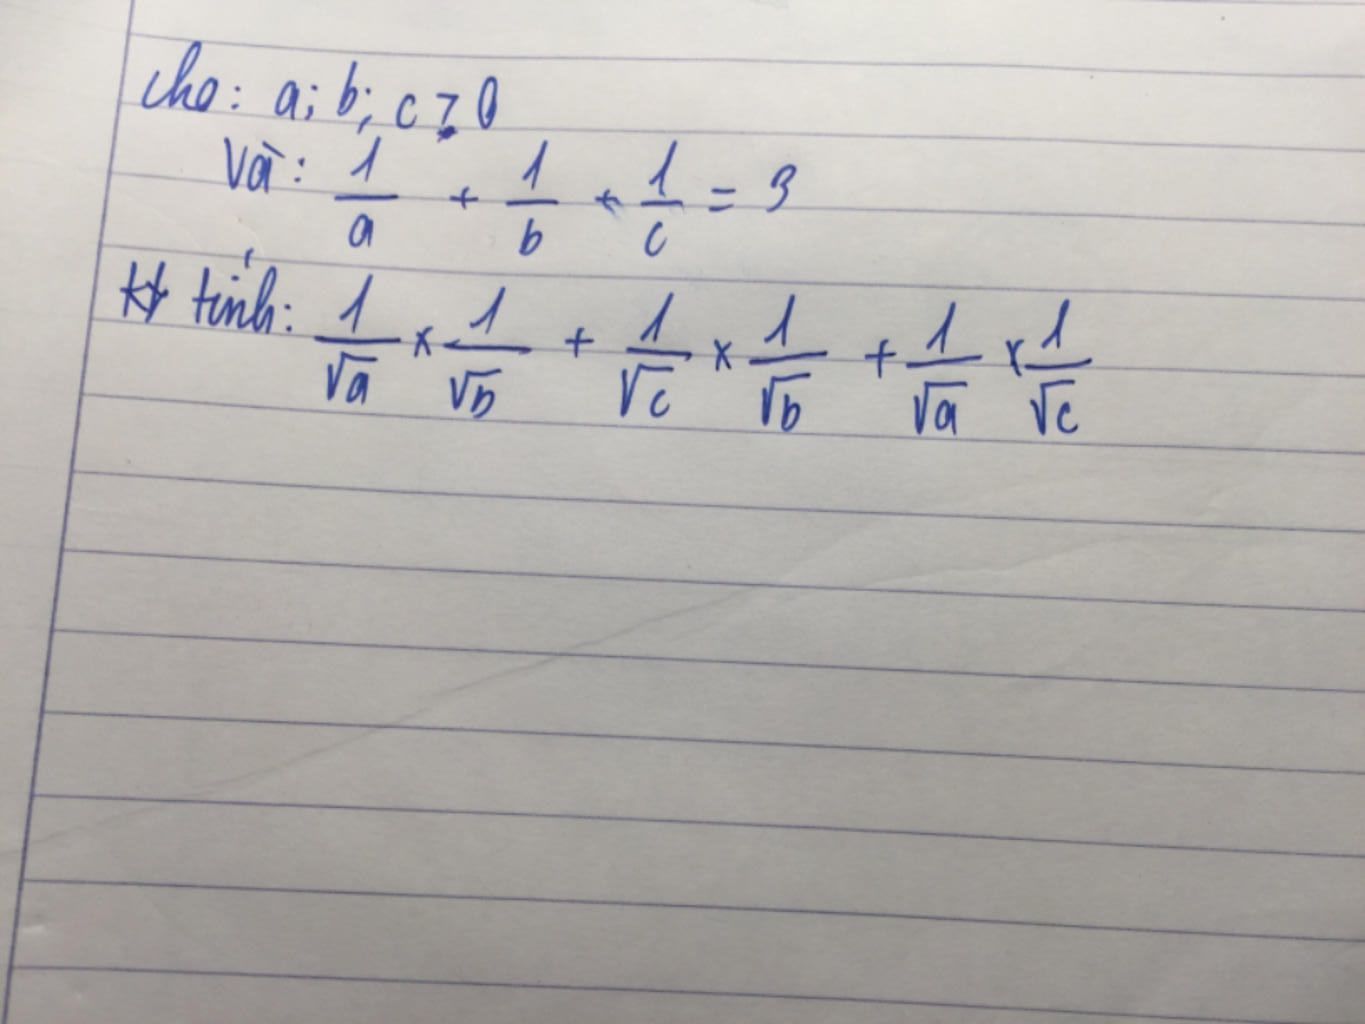 Cho: a; b; c > 0
Và: 1/a + 1/b + 1/c = 3
tính: 1/√a × 1/√b + 1/√c × 1/√b + 1/√a × 1/√c